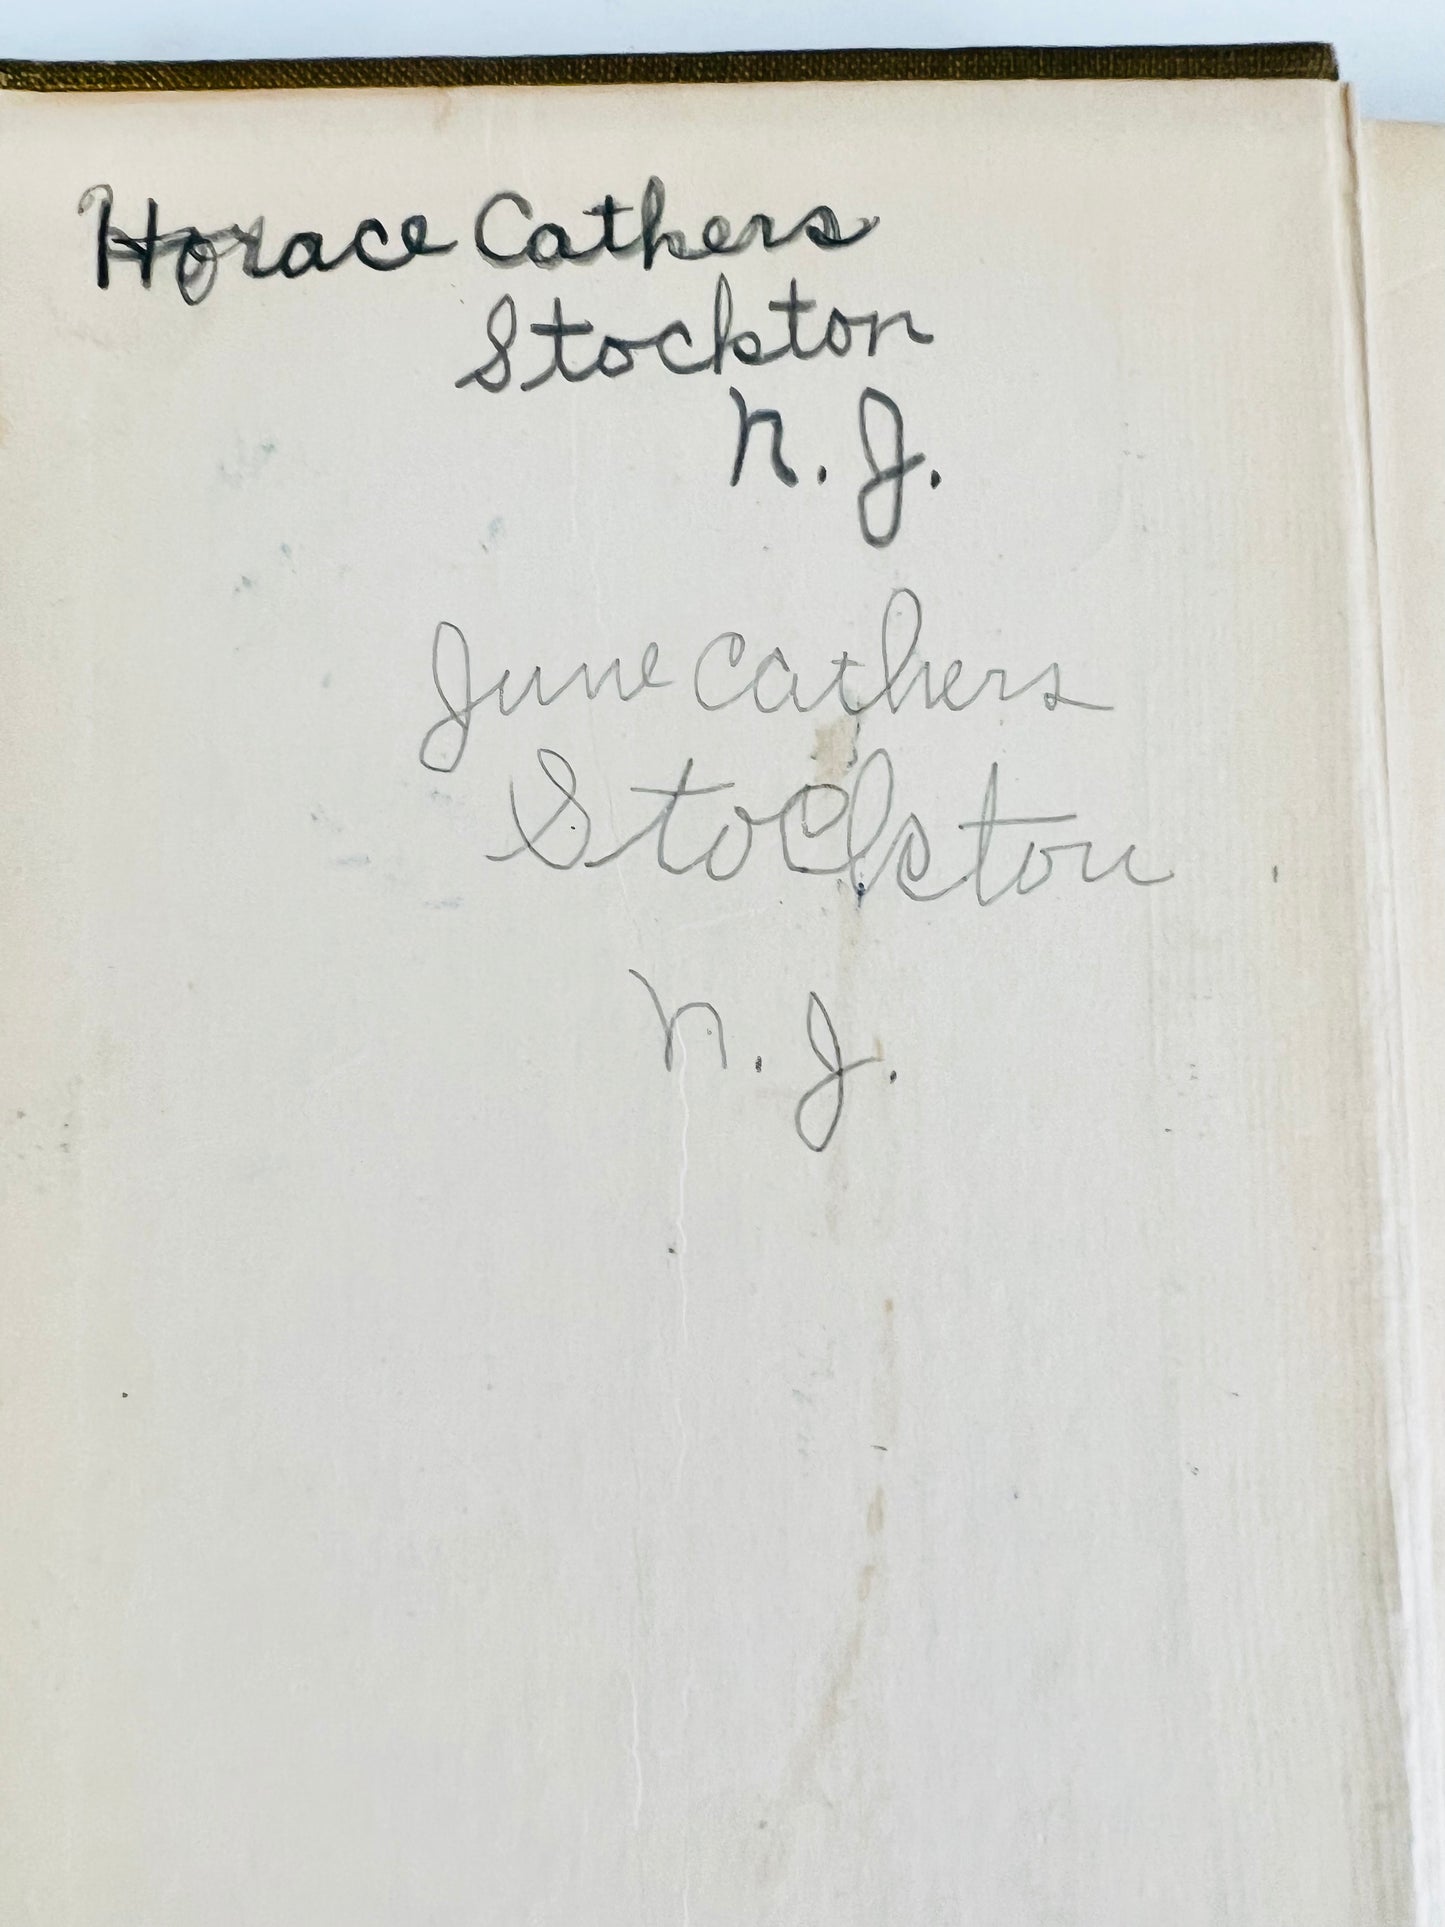 Horace Cathers
Stockton
N. J.
June Cathers
Stockton
N. J.